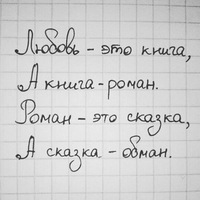 Любовь - это книга,
А книга - роман.
Роман - это сказка,
А сказка - обман.